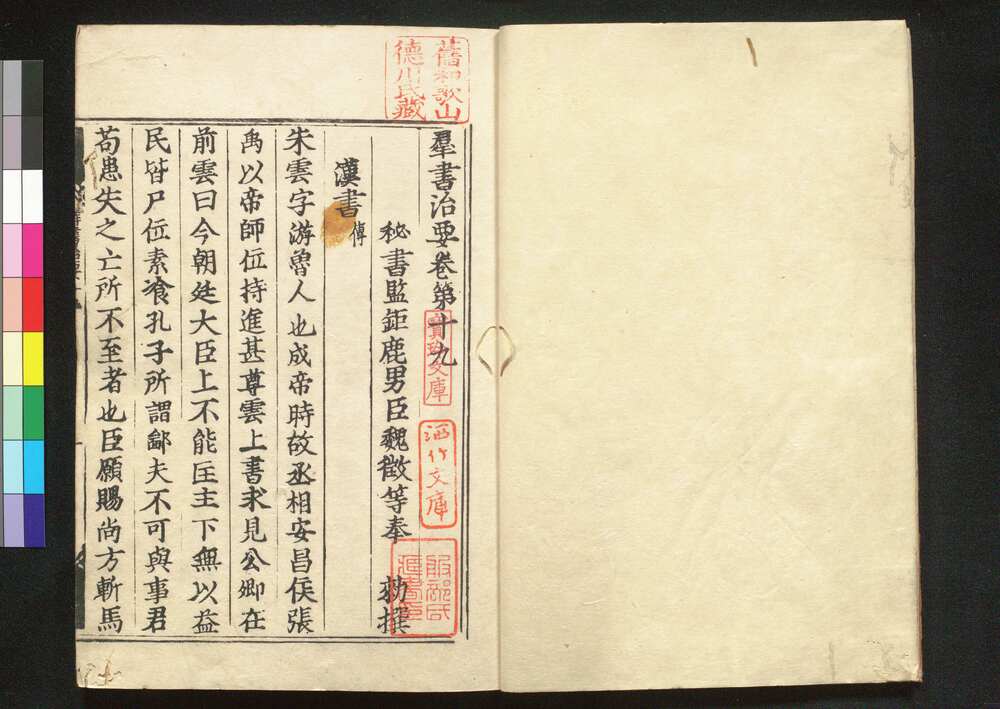 羣書治要卷第十九
秘書監鉅鹿男臣魏徵等奉 勑撰
漢書 傳
朱雲字游魯人也成帝時故丞相安昌侯張
禹以帝師位持進甚尊雲上書求見公卿在
前雲曰今朝廷大臣上不能匡主下無以益
民皆尸位素飡孔子所謂鄙夫不可與事君
苟患失之亡所不至者也臣願賜尚方斬馬
舊和歌山
德川氏藏
寶玲文庫
洒竹文庫
服部氏